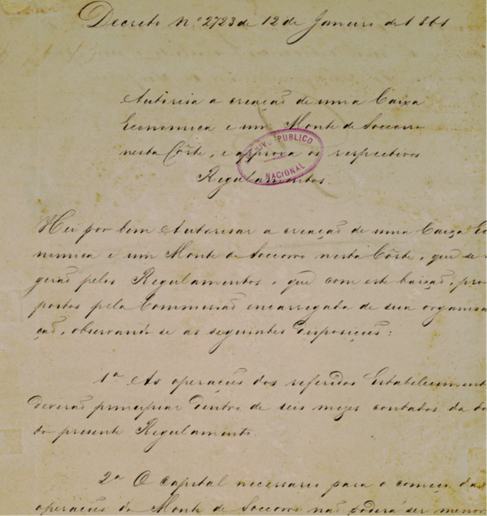 Decreto Nº 2723 de 12 de Janeiro de 1861
Autorisa a creação de uma Caixa
Economica e um Monte de Soccorro
nesta Côrte, e approva os respectivos
Regulamentos.
PUBLICO
NACIONAL
Hei por bem Autorisar a creação de uma Caixa Eco
nomica e um Monte de Soccorro nesta Côrte, que se
gerão pelos Regulamentos, que com este baixão, pro
postos pela Commissão encarregada de sua organisa
ção, observando se as seguintes disposições:
1ª As operações dos referidos Estabeleciment
deverão principiar dentro de seis mezes contados da
do presente Regulamento.
2ª O capital necessario para o começo das
operações do Monte de Soccorro não poderá ser menor